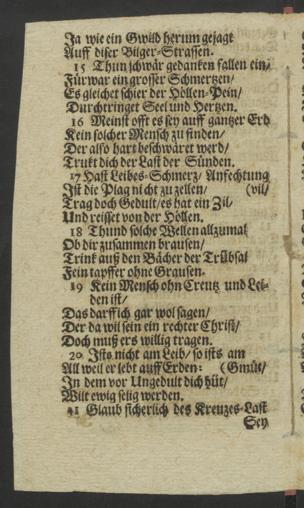 Ja wie ein Gwild herum gejagt
Auff diser Bilger-Strassen.
15 Thun schwär gedanken fallen ein/
Fürwar ein grosser Schmertzen/
Es gleichet schier der Höllen-Pein/
Durchtringet Seel und Hertzen.
16 Meinst offt es sey auff gantzer Erd
Kein solcher Mensch zu finden/
Der also hart beschwäret werd/
Trukt dich der Last der Sünden.
17 Hast Leibes-Schmerz/ Anfechtung
Ist die Plag nicht zu zellen/ (vil/
Trag doch Gedult/ es hat ein Zil/
Und reisset von der Höllen.
18 Thund solche Wellen allzumal
Ob dir zusammen brausen/
Trink auß den Bächer der Trübsal
Fein tapffer ohne Grausen.
19 Kein Mensch ohn Creutz und Lei-
den ist/
Das darff ich gar wol sagen/
Der da wil sein ein rechter Christ/
Doch muß ers willig tragen.
20 Ists nicht am Leib/ so ists am
All weil er lebt auff Erden: (Gmüt/
In dem vor Ungedult dich hüt/
Wilt ewig selig werden.
21 Glaub sicherlich des Kreuzes-Last
Sey